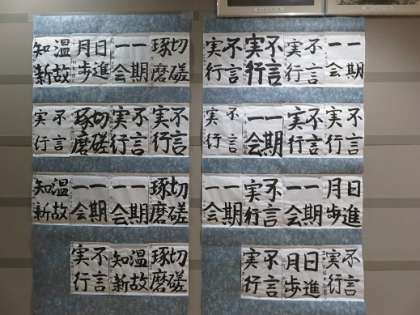 一期一会
不言実行
不言実行
不言実行
不言実行
不言実行
一期一会
不言実行
日進月歩
一期一会
不言実行
一期一会
不言実行
日進月歩
不言実行
切磋琢磨
一期一会
日進月歩
温故知新
不言実行
不言実行
切磋琢磨
不言実行
切磋琢磨
一期一会
一期一会
温故知新
切磋琢磨
温故知新
不言実行